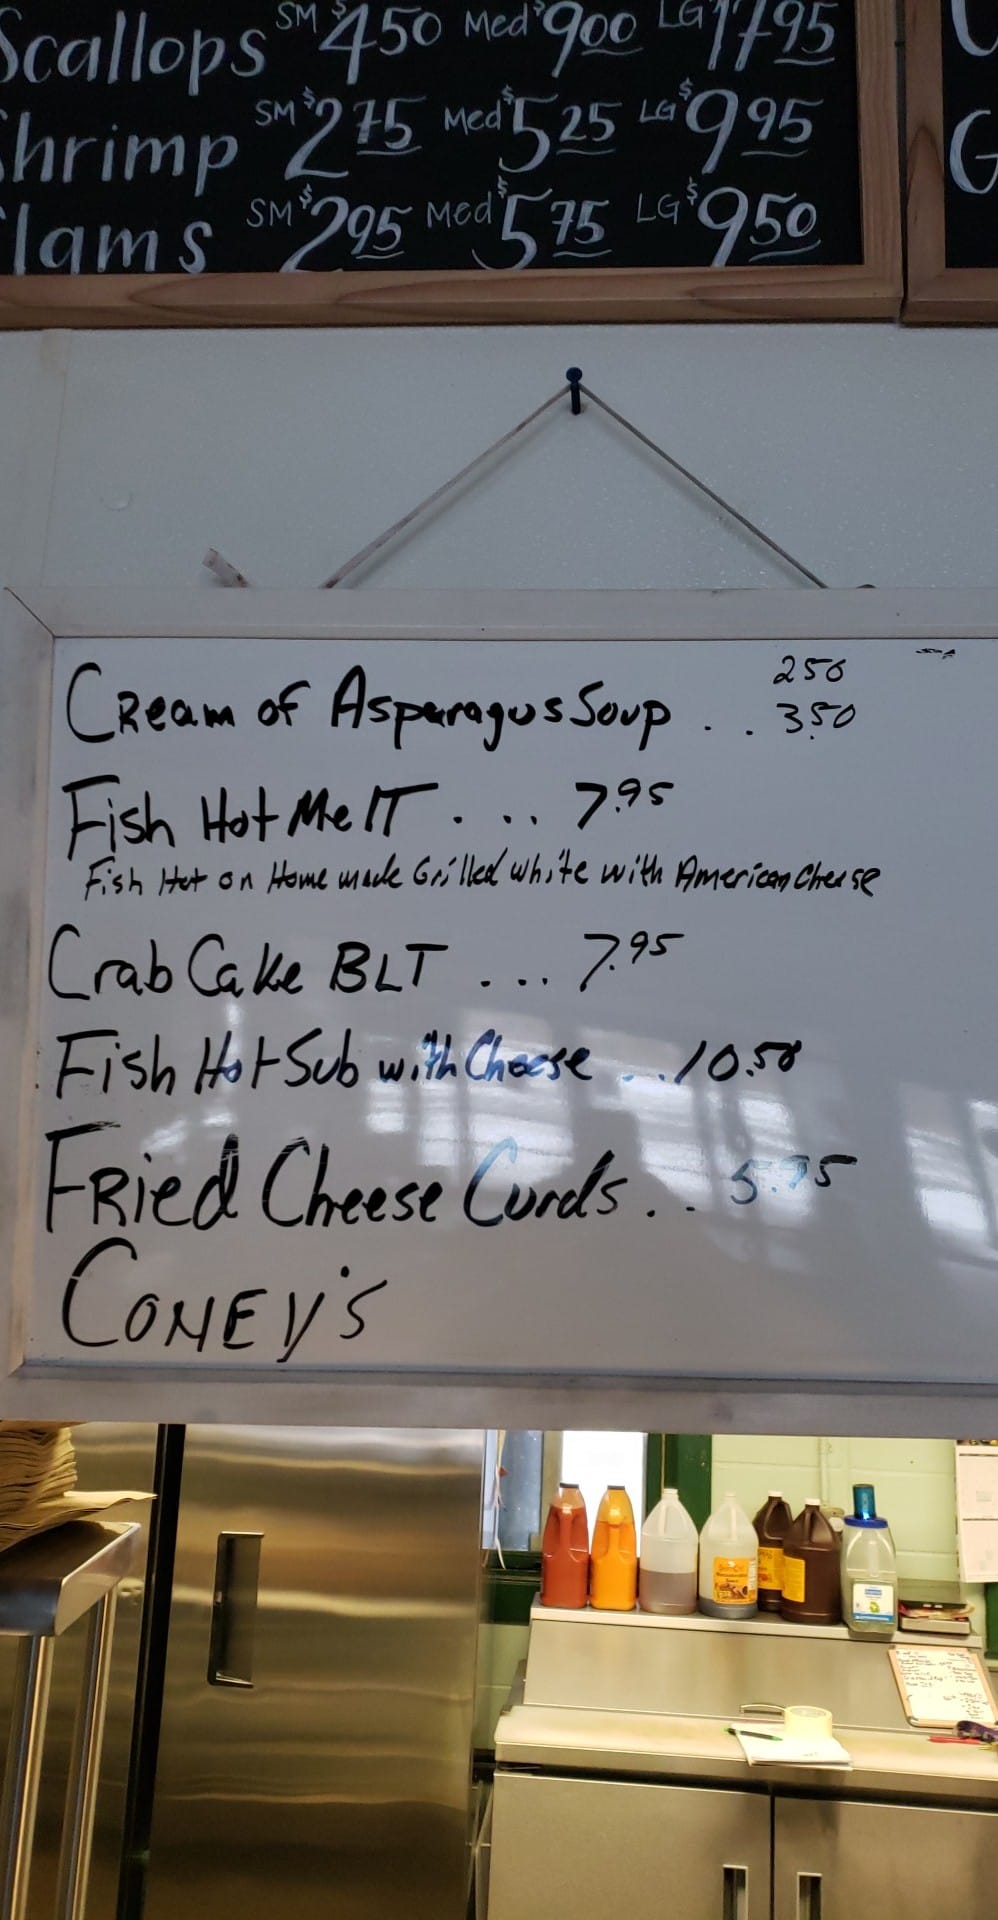 Scallops SM $4.50 Med $9.00 LG 17.95
Shrimp SM $2.75 Med $5.25 LG $9.95
Clams SM $2.95 Med $5.75 LG $9.50
250
Cream of Asparagus Soup . . 3.50
Fish Hot Melt . ... 7.95
Fish Hot on Home made Grilled white with American Cheese
Crab Cake BLT . ... 7.95
Fish Hot Sub with Cheese . .. 10.50
Fried Cheese Curds . . 5.95
CONEY'S